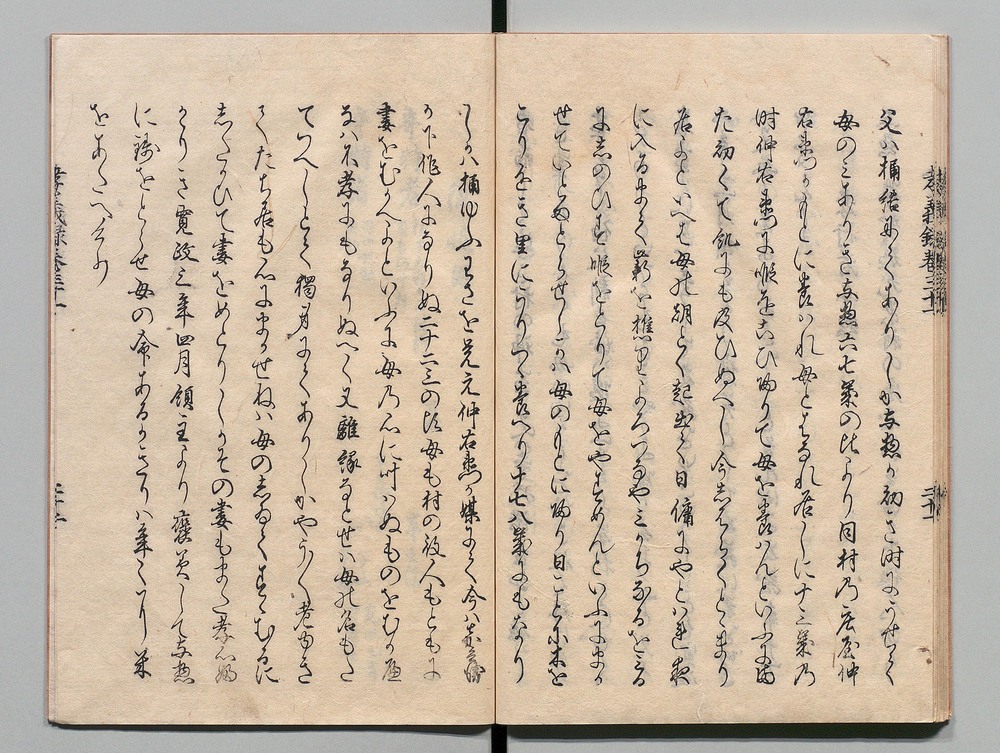 父ハ桶結にてありしか与惣か幼き時にうせて
母のミありき与惣六七歳の比より同村乃庄屋仲
右衛門かもとに養ハれ母とはなれ居しに十三歳乃
時仲右衛門に暇をこひ帰りて母を養ハんといふにま
た幼くて飢にも及ひぬへし今しはらくとゝまり
居よといへと母は朝とく起出て日傭にやとはれ夜
に入るまて薪を樵りよろつなやミかちなるをミる
にしのひす暇をとりて母をやすめんといふにまか
せていとまとらせしかハ母のもとに帰り日ことに木を
こり遠き里にうりつゝ養へり十七八歳にもなり
しかハ桶ゆふわさを覚え仲右衛門か媒にて今ハ
か下作人になりぬ二十二三の頃母も村の役人もともに
妻をむかへよといふに母乃心に叶ハぬものをむかへ
なハ不孝にもなりぬへく又離縁なとせハ母の名もた
てつへしとて独身にてありしかやうやく老ゆき
てたち居も心にまかせねハ母のしゐてすゝむるに
したかひて妻をめとりしかその妻もまた孝心ふ
かりき寛政三年四月領主より褒美して与惣
に銭をとらせ母の命あるかきりハ年ことに米
をあたへたり
孝義録巻三十一